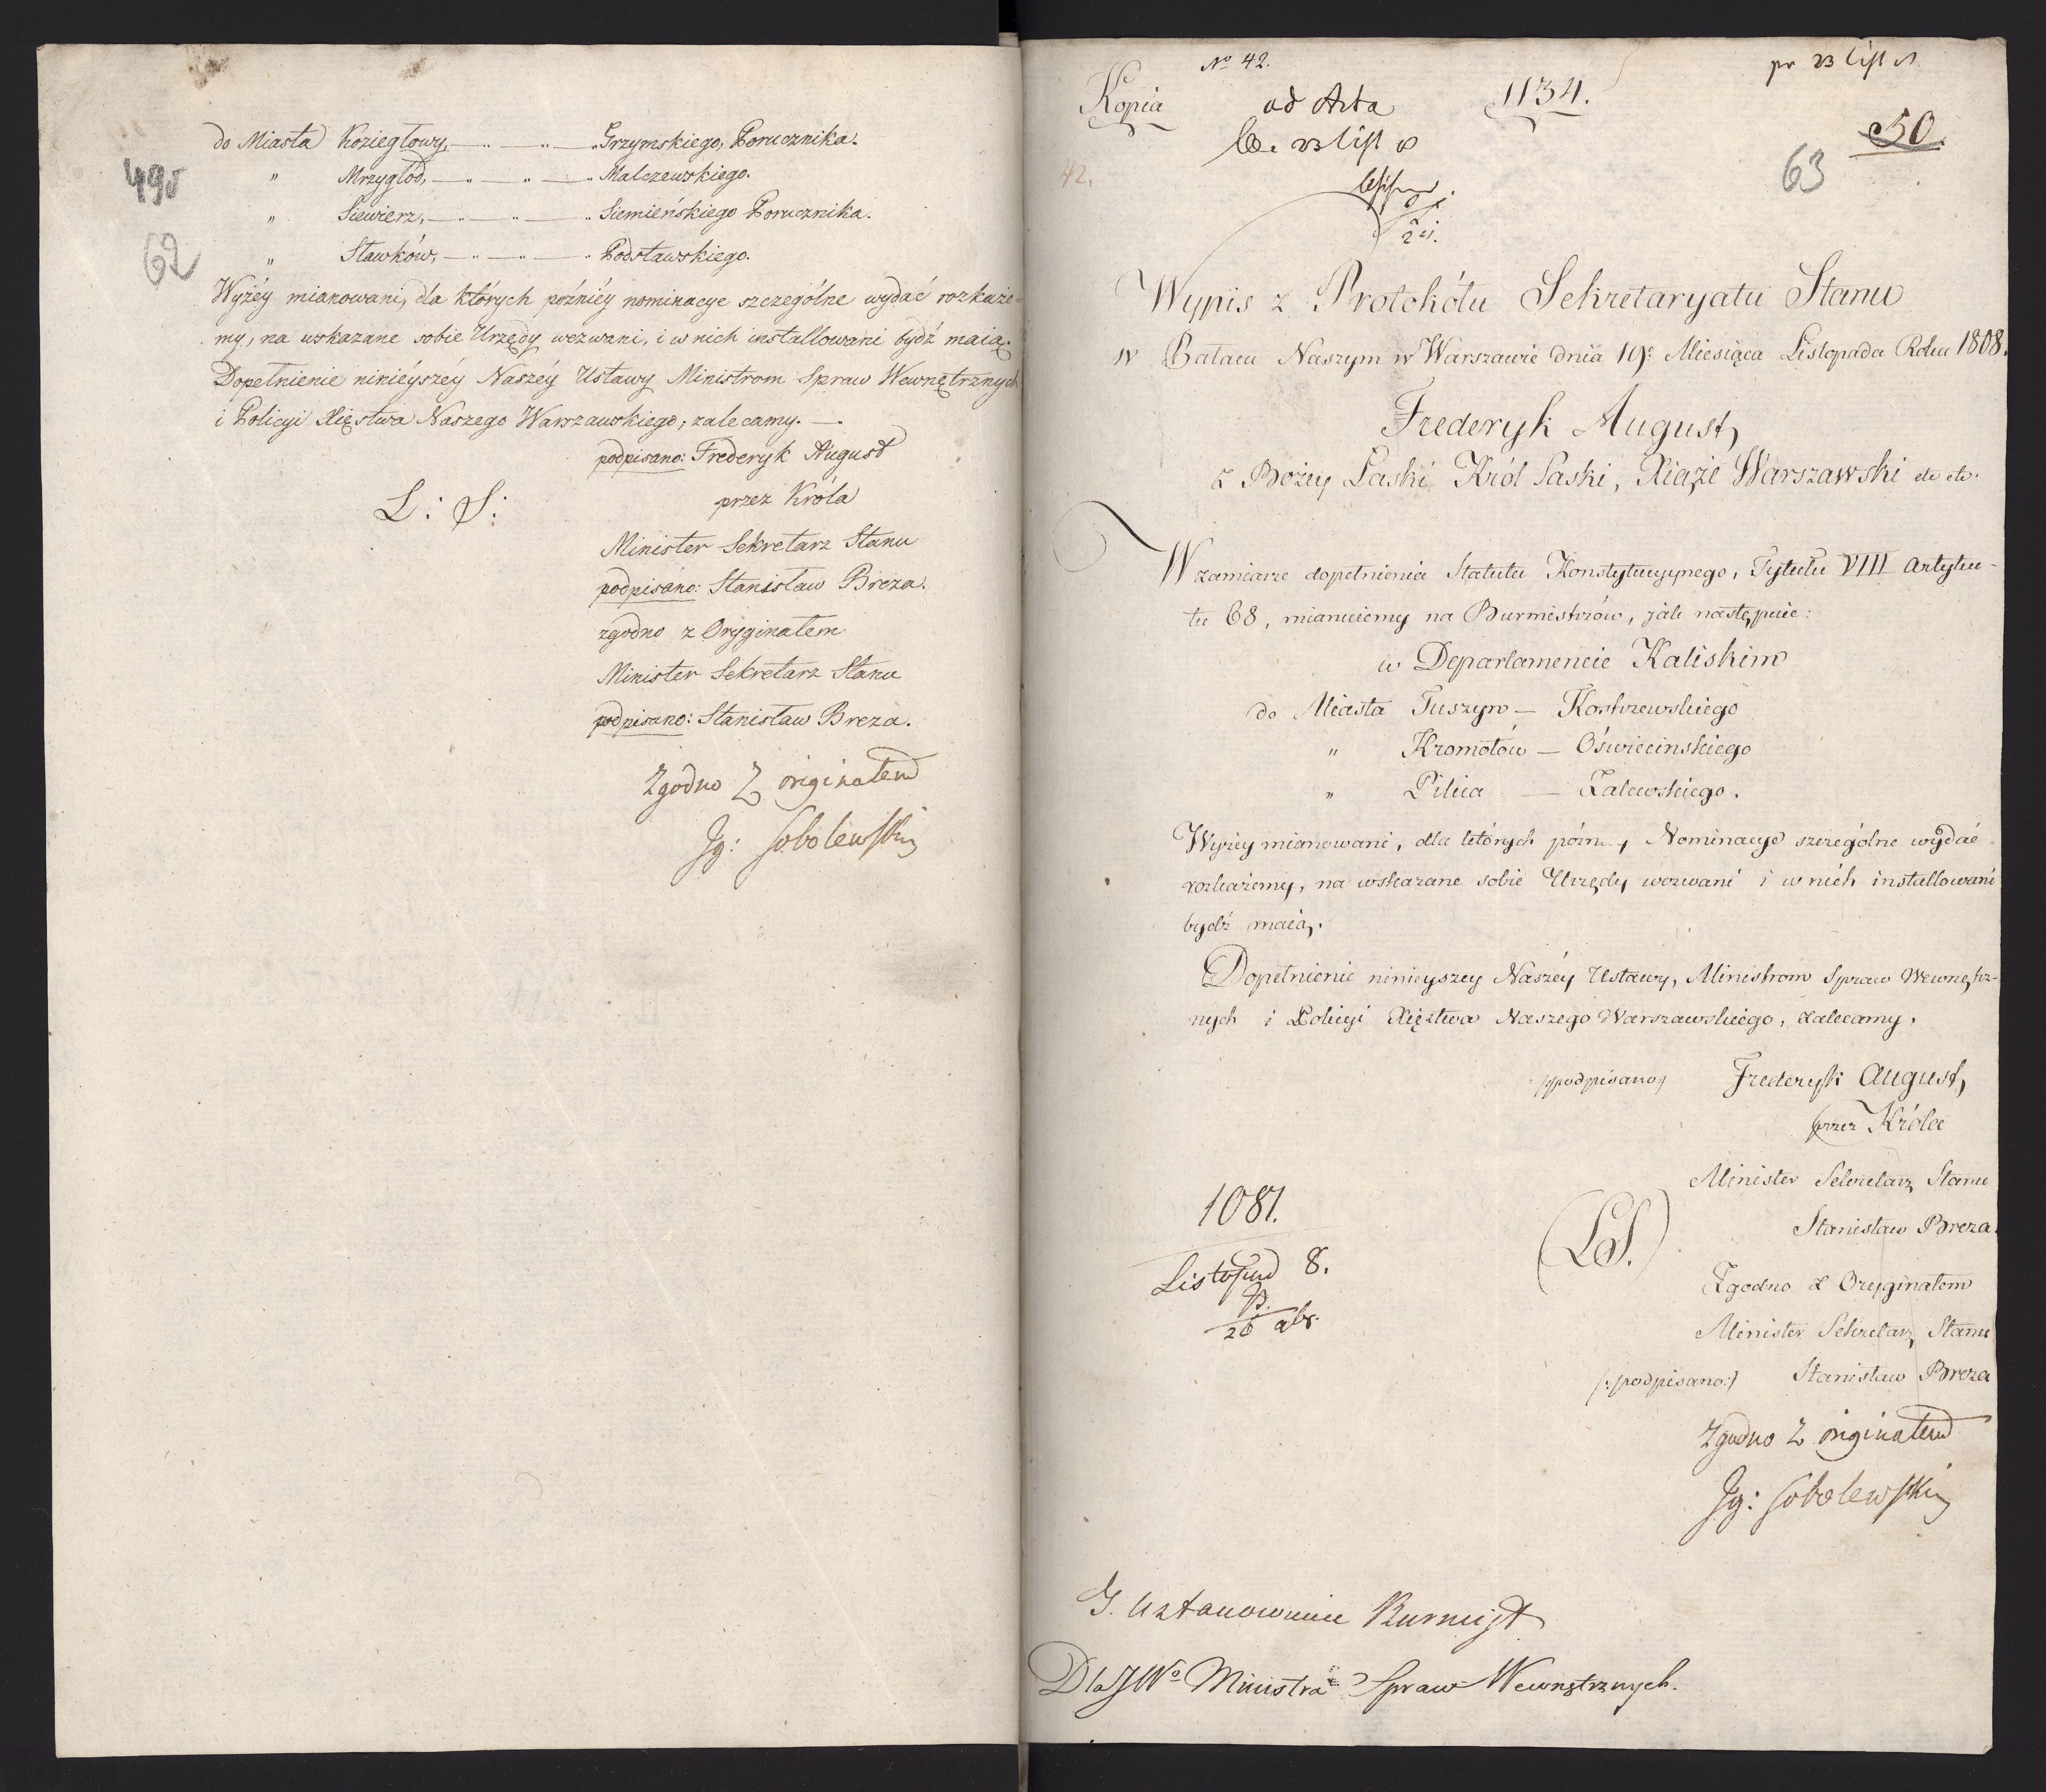 do Miasta Koziegłowy, — „ — „ — „ Grzymskiego, Porucznika.
„ Mrzygłod, — „ — „ — „ Malczewskiego.
„ Siewierz, — „ — „ — „ Siemieńskiego Porucznika.
„ Sławków, — „ — „ — „ Podsławskiego.
495
62
Wyżéy mianowani, dla których poźniéy nominacye szczególne wydać rozkaże-
my, na wskazane sobie Urzędy wezwani, i w nich installowani bydź maią.
Dopełnienie niniéyszéy Naszéy Ustawy Ministrom Spraw Wewnętrznych
i Policyi Xięstwa Naszego Warszawskiego, zalecamy. —
podpisano: Frederyk August
L: S:
przez Króla
Minister Sekretarz Stanu
podpisano: Stanisław Breza.
zgodno z Oryginałem
Minister Sekretarz Stanu
podpisano: Stanisław Breza.
Zgodno Z originałem
Ig: Sobolewski
No 42.
Kopia
ad Acta
1134.
pr 23 List
50.
63
23 List
42.
Wypis z Protokółu Sekretaryatu Stanu
w Pałacu Naszym w Warszawie dnia 19o Miesiąca Listopada Roku 1808.
Frederyk August,
z Bożey Łaski Król Saski, Xiąże Warszawski etc etc.
W zamiarze dopełnienia Statutu Konstytucyynego, Tytułu VIII Artyku-
łu 68, mianuiemy na Burmistrzów, jak następuie:
w Departamencie Kaliskim
do Miasta Tuszyn — Kostrzewskiego
„ Kromołów — Oświecinskiego
„ Pilica — Zalewskiego.
Wyżey mianowani, dla których Nominacye szczególne wydać
rozkażemy, na wskazane sobie Urzędy wezwani i w nich installowani
bydź maią.
Dopełnienie ninieyszey Naszéy Ustawy, Ministrom Spraw Wewnętrz-
nych i Policyi Xięztwa Naszego Warszawskiego, zalecamy.
/:podpisano:/ Frederyk August,
przez Króla
Minister Sekretarz Stanu
1081.
(LS.)
Stanisław Breza.
Listopad 8.
26
Zgodno z Oryginałem
Minister Sekretarz Stanu
/:podpisano:/ Stanisław Breza
Zgodno Z originałem
Ig: Sobolewski
Ustanowienie Burmist
Dla JWo Ministra Spraw Wewnętrznych.